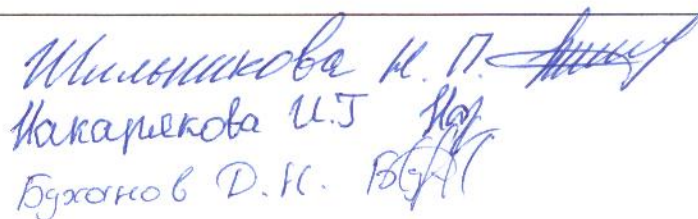 Шильникова Н. П.
Накарякова И.Г
Буханов Д.Н.